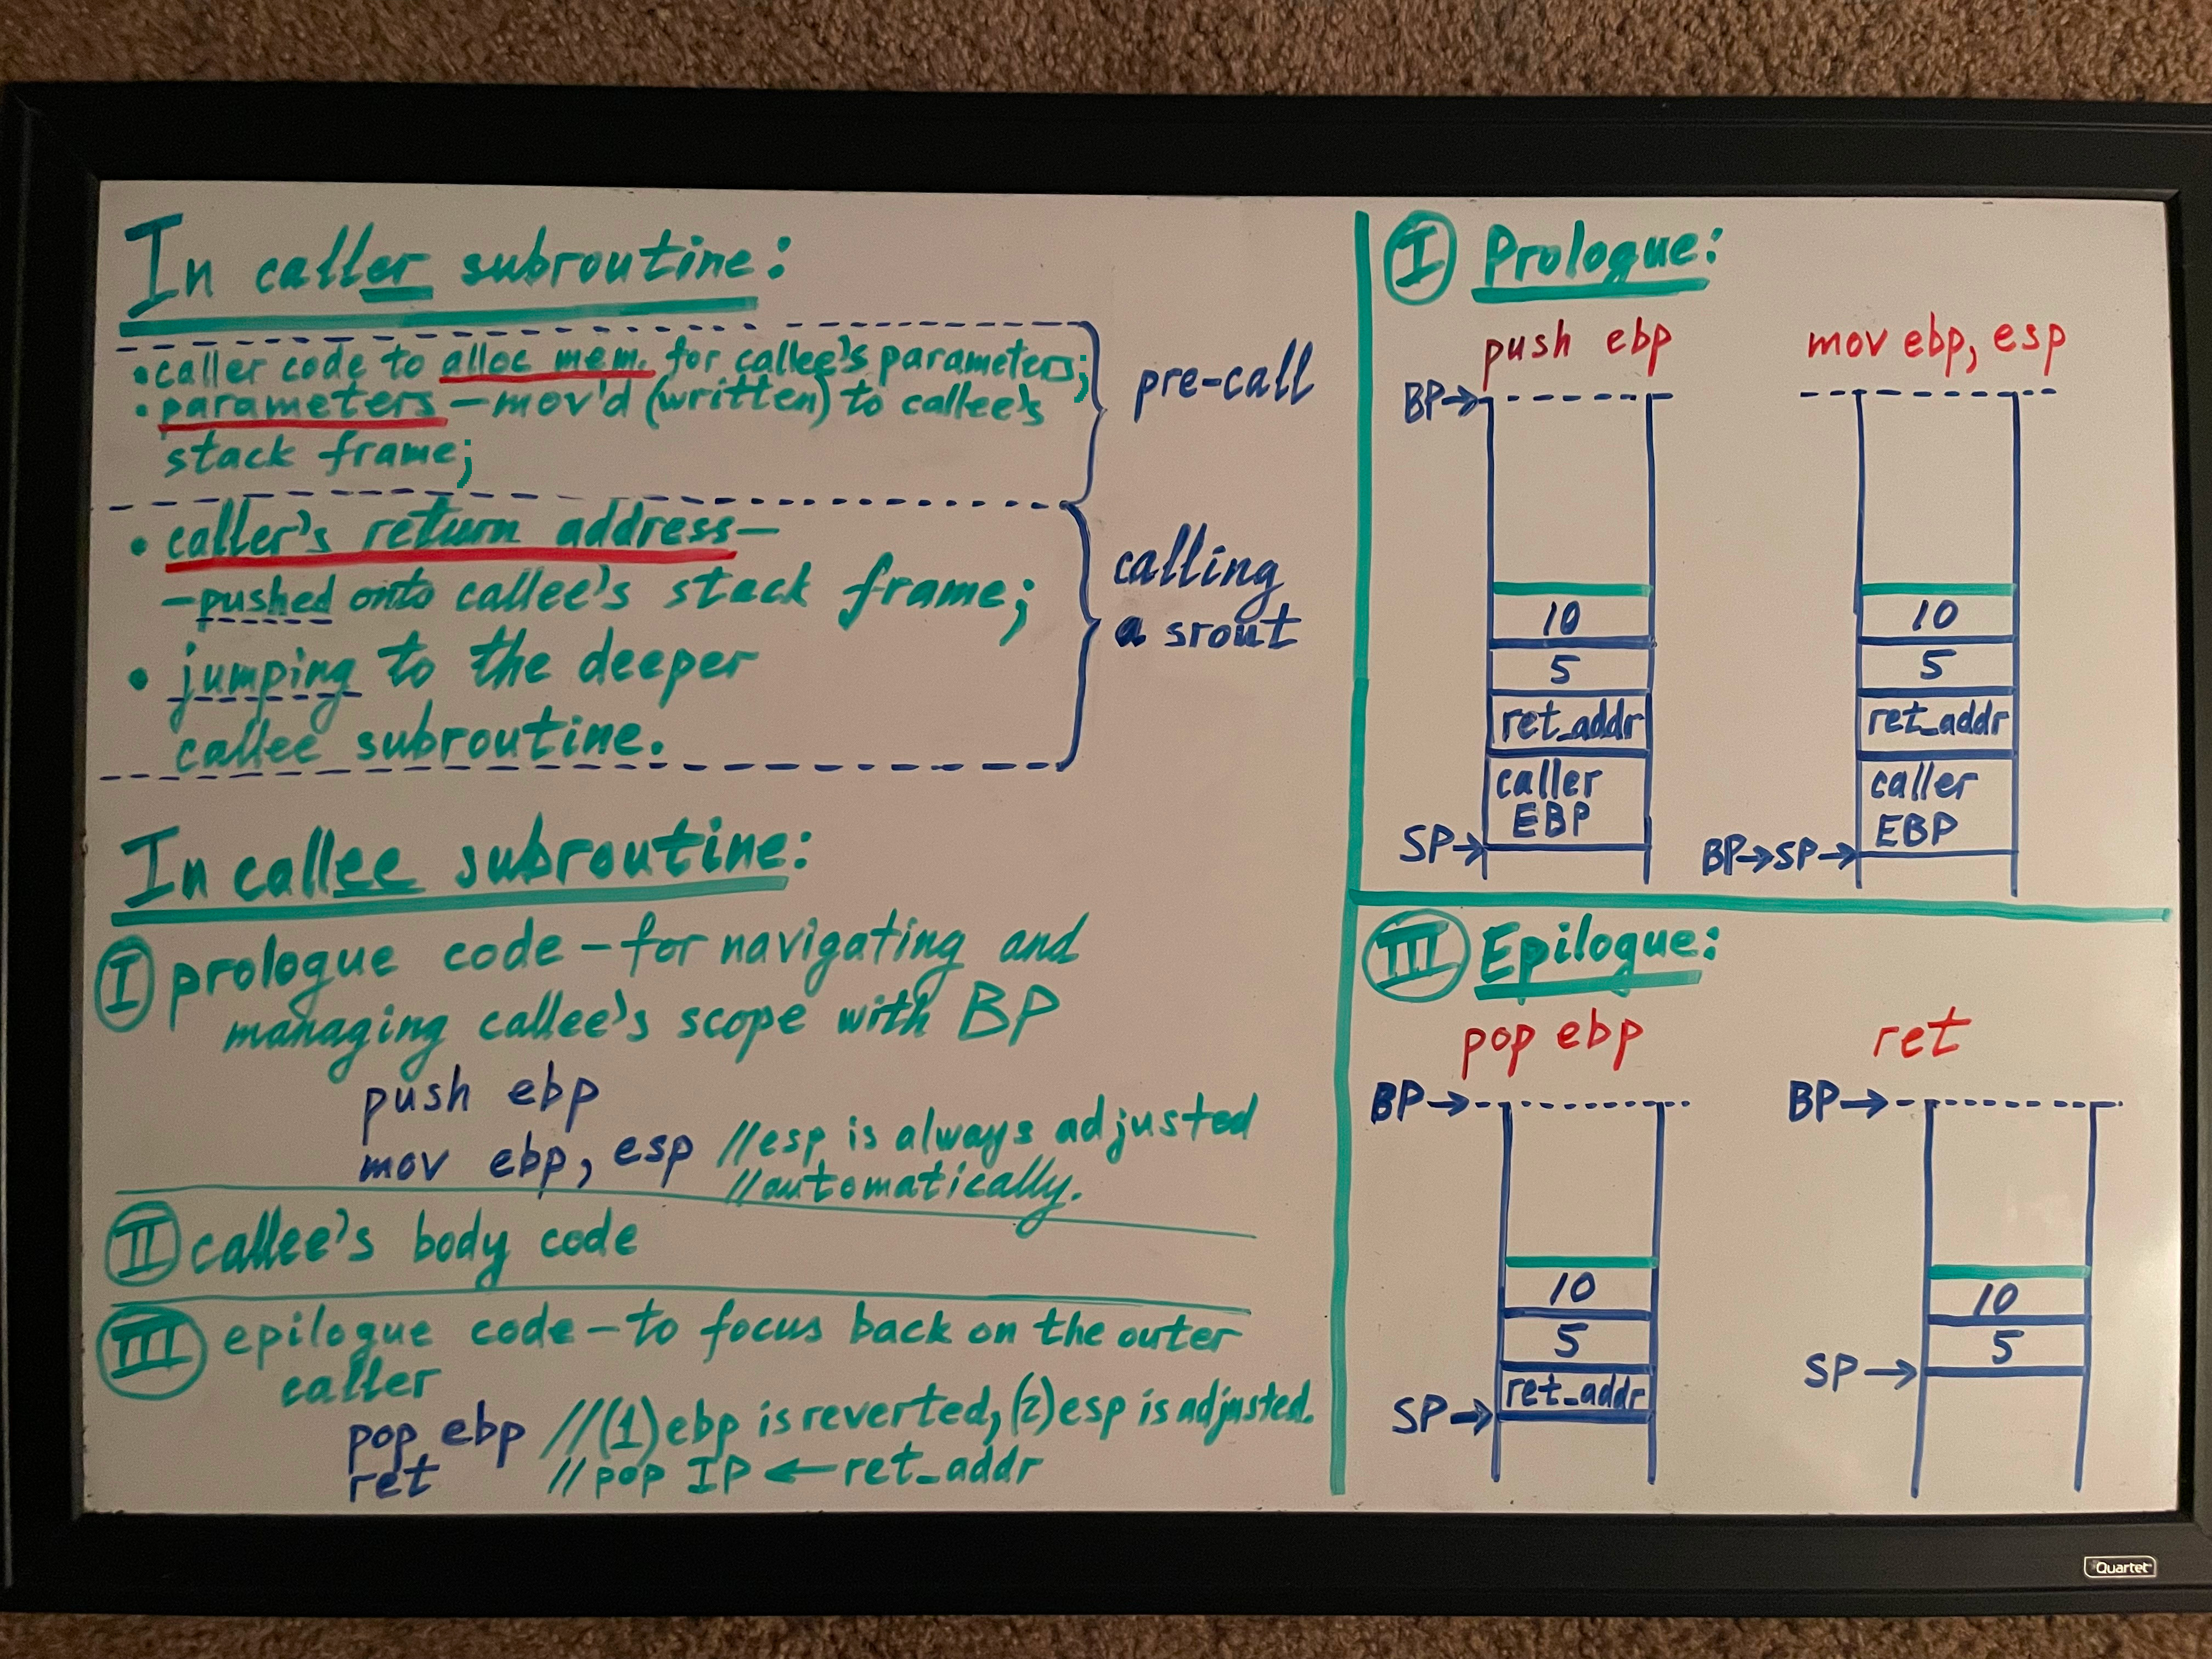 In caller subroutine:
• caller code to alloc mem. for callee's parameters;
• parameters – mov'd (written) to callee's
stack frame;
pre-call
• caller's return address –
– pushed onto callee's stack frame;
• jumping to the deeper
callee subroutine.
calling
a srout
In callee subroutine:
I prologue code – for navigating and
managing callee's scope with BP
push ebp
mov ebp, esp //esp is always adjusted
//automatically.
II callee's body code
III epilogue code – to focus back on the outer
caller
pop ebp //(1) ebp is reverted, (2) esp is adjusted.
ret //pop IP ← ret_addr
I Prologue:
push ebp
BP→
10
5
ret_addr
caller
EBP
SP→
mov ebp, esp
10
5
ret_addr
caller
EBP
BP→SP→
III Epilogue:
pop ebp
BP→
10
5
ret_addr
SP→
ret
BP→
10
5
SP→
Quartet